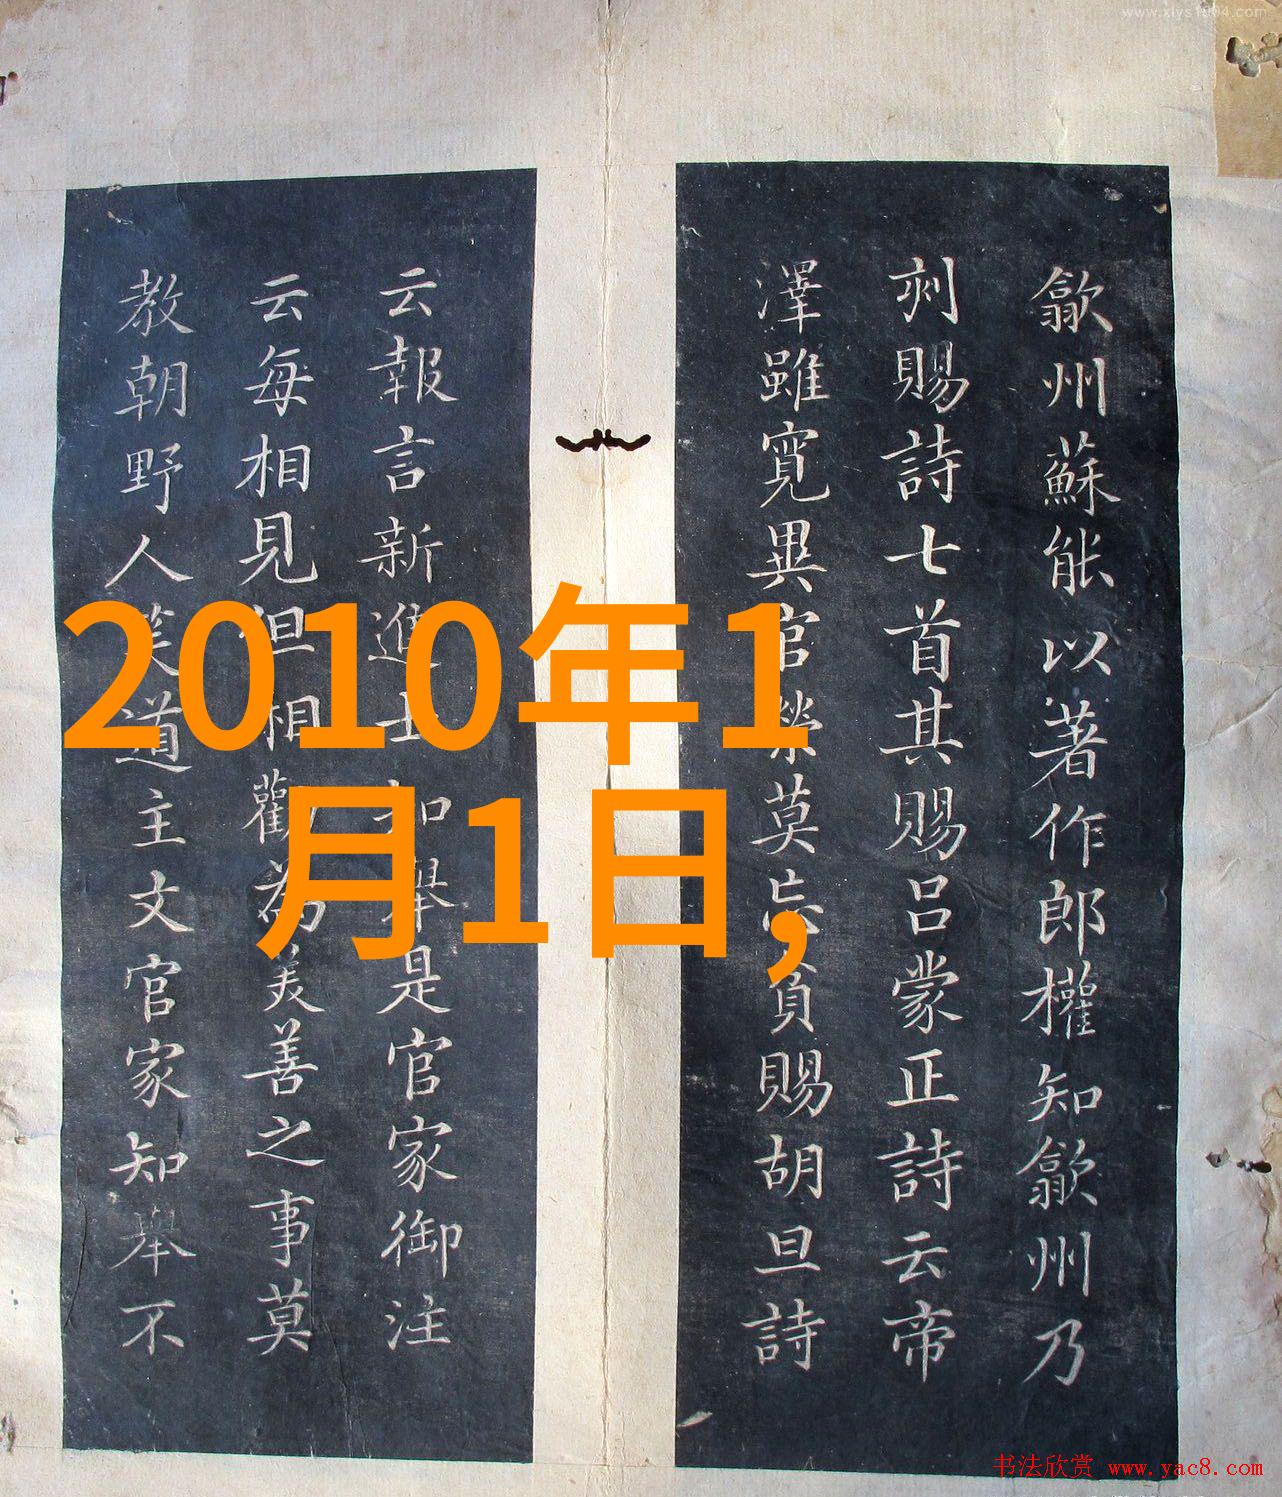 www.xiys1004.com
歙州蘇能以著作郎權知歙州乃
刻賜詩七首其賜呂蒙正詩云帝
澤雖寛異官榮莫忘貧賜胡旦詩
云報言新進士知舉是官家御注
云每相見但相勸為美善之事莫
教朝野人笑道主文官家知舉不
2010年1
月1日,
书法欣赏 www.yac8.com